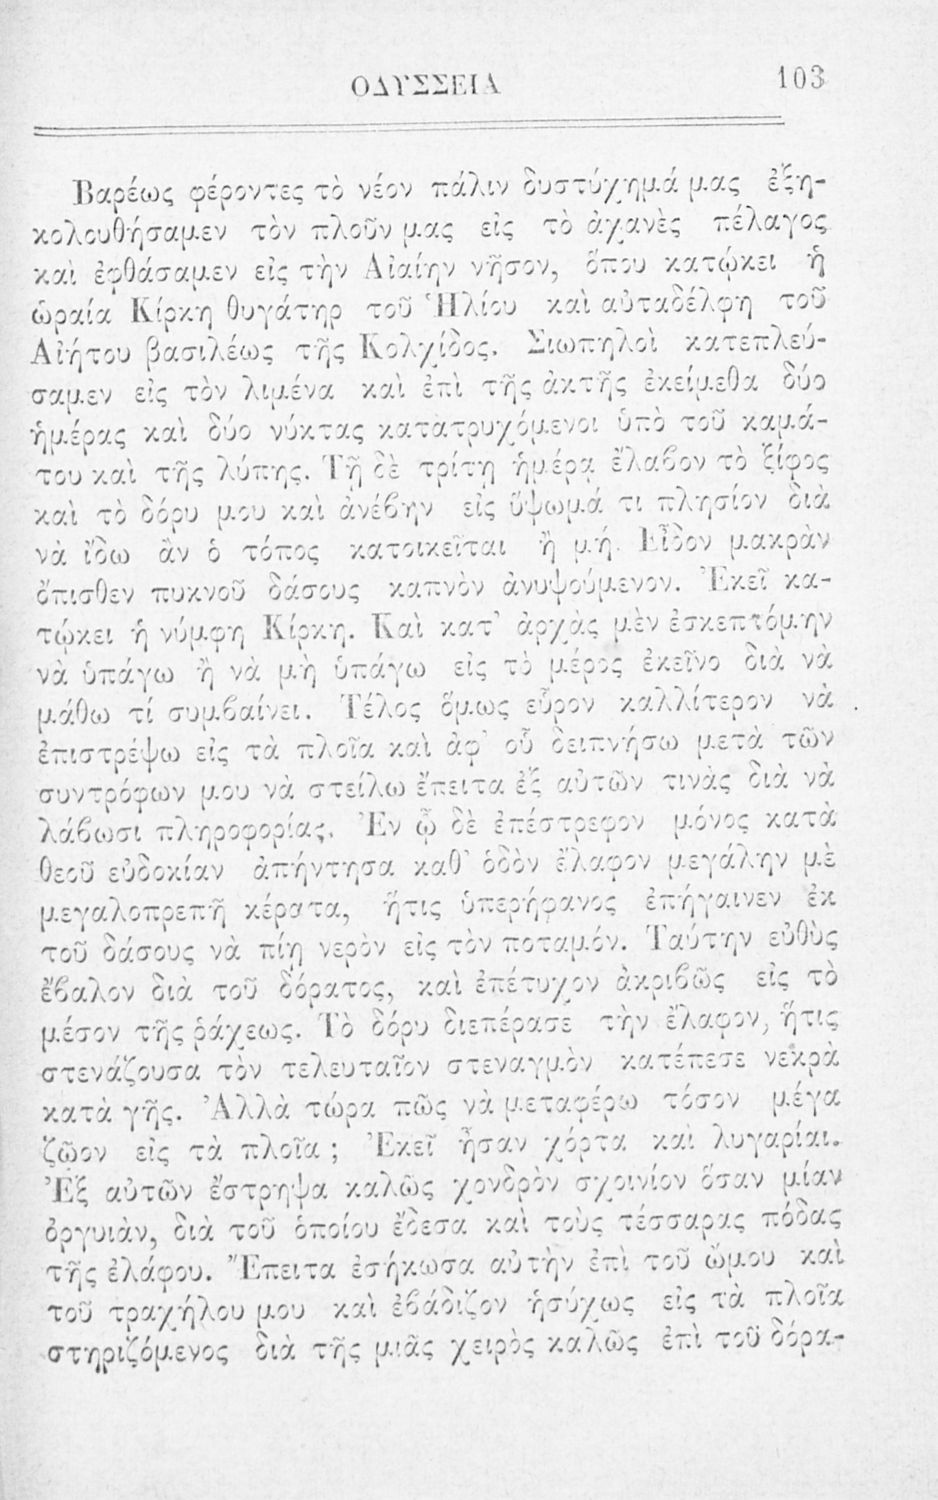 ΟΔΥΣΣΕΙΑ 103
Βαρέως φέροντες τὸ νέον πάλιν δυστύχημά μας ἐξη-
κολουθήσαμεν τὸν πλοῦν μας εἰς τὸ ἀχανὲς πέλαγος
καὶ ἐφθάσαμεν εἰς τὴν Αἰαίην νῆσον, ὅπου κατῴκει ἡ
ὡραία Κίρκη θυγάτηρ τοῦ Ἡλίου καὶ αὐταδέλφη τοῦ
Αἰήτου βασιλέως τῆς Κολχίδος. Σιωπηλοὶ κατεπλεύ-
σαμεν εἰς τὸν λιμένα καὶ ἐπὶ τῆς ἀκτῆς ἐκείμεθα δύο
ἡμέρας καὶ δύο νύκτας κατατρυχόμενοι ὑπὸ τοῦ καμά-
του καὶ τῆς λύπης. Τῇ δὲ τρίτῃ ἡμέρᾳ ἔλαβον τὸ ξίφος
καὶ τὸ δόρυ μου καὶ ἀνέβην εἰς ὕψωμά τι πλησίον διὰ
νὰ ἴδω ἂν ὁ τόπος κατοικεῖται ἢ μή. Εἶδον μακρὰν
ὄπισθεν πυκνοῦ δάσους καπνὸν ἀνυψούμενον. Ἐκεῖ κα-
τῴκει ἡ νύμφη Κίρκη. Καὶ κατ' ἀρχὰς μὲν ἐσκεπτόμην
νὰ ὑπάγω ἢ νὰ μὴ ὑπάγω εἰς τὸ μέρος ἐκεῖνο διὰ νὰ
μάθω τί συμβαίνει. Τέλος ὅμως εὗρον καλλίτερον νὰ
ἐπιστρέψω εἰς τὰ πλοῖα καὶ ἀφ' οὗ δειπνήσω μετὰ τῶν
συντρόφων μου νὰ στείλω ἔπειτα ἐξ αὐτῶν τινὰς διὰ νὰ
λάβωσι πληροφορίας. Ἐν ᾧ δὲ ἐπέστρεφον μόνος κατὰ
θεοῦ εὐδοκίαν ἀπήντησα καθ' ὁδὸν ἔλαφον μεγάλην μὲ
μεγαλοπρεπῆ κέρατα, ἥτις ὑπερήφανος ἐπήγαινεν ἐκ
τοῦ δάσους νὰ πίῃ νερὸν εἰς τὸν ποταμόν. Ταύτην εὐθὺς
ἔβαλον διὰ τοῦ δόρατος, καὶ ἐπέτυχον ἀκριβῶς εἰς τὸ
μέσον τῆς ῥάχεως. Τὸ δόρυ διεπέρασε τὴν ἔλαφον, ἥτις
στενάζουσα τὸν τελευταῖον στεναγμὸν κατέπεσε νεκρὰ
κατὰ γῆς. Ἀλλὰ τώρα πῶς νὰ μεταφέρω τόσον μέγα
ζῶον εἰς τὰ πλοῖα ; Ἐκεῖ ἦσαν χόρτα καὶ λυγαρίαι.
Ἐξ αὐτῶν ἔστρηψα καλῶς χονδρὸν σχοινίον ὅσαν μίαν
ὀργυιὰν, διὰ τοῦ ὁποίου ἔδεσα καὶ τοὺς τέσσαρας πόδας
τῆς ἐλάφου. Ἔπειτα ἐσήκωσα αὐτὴν ἐπὶ τοῦ ὤμου καὶ
τοῦ τραχήλου μου καὶ ἐβάδιζον ἡσύχως εἰς τὰ πλοῖα
στηριζόμενος διὰ τῆς μιᾶς χειρὸς καλῶς ἐπὶ τοῦ δόρα-